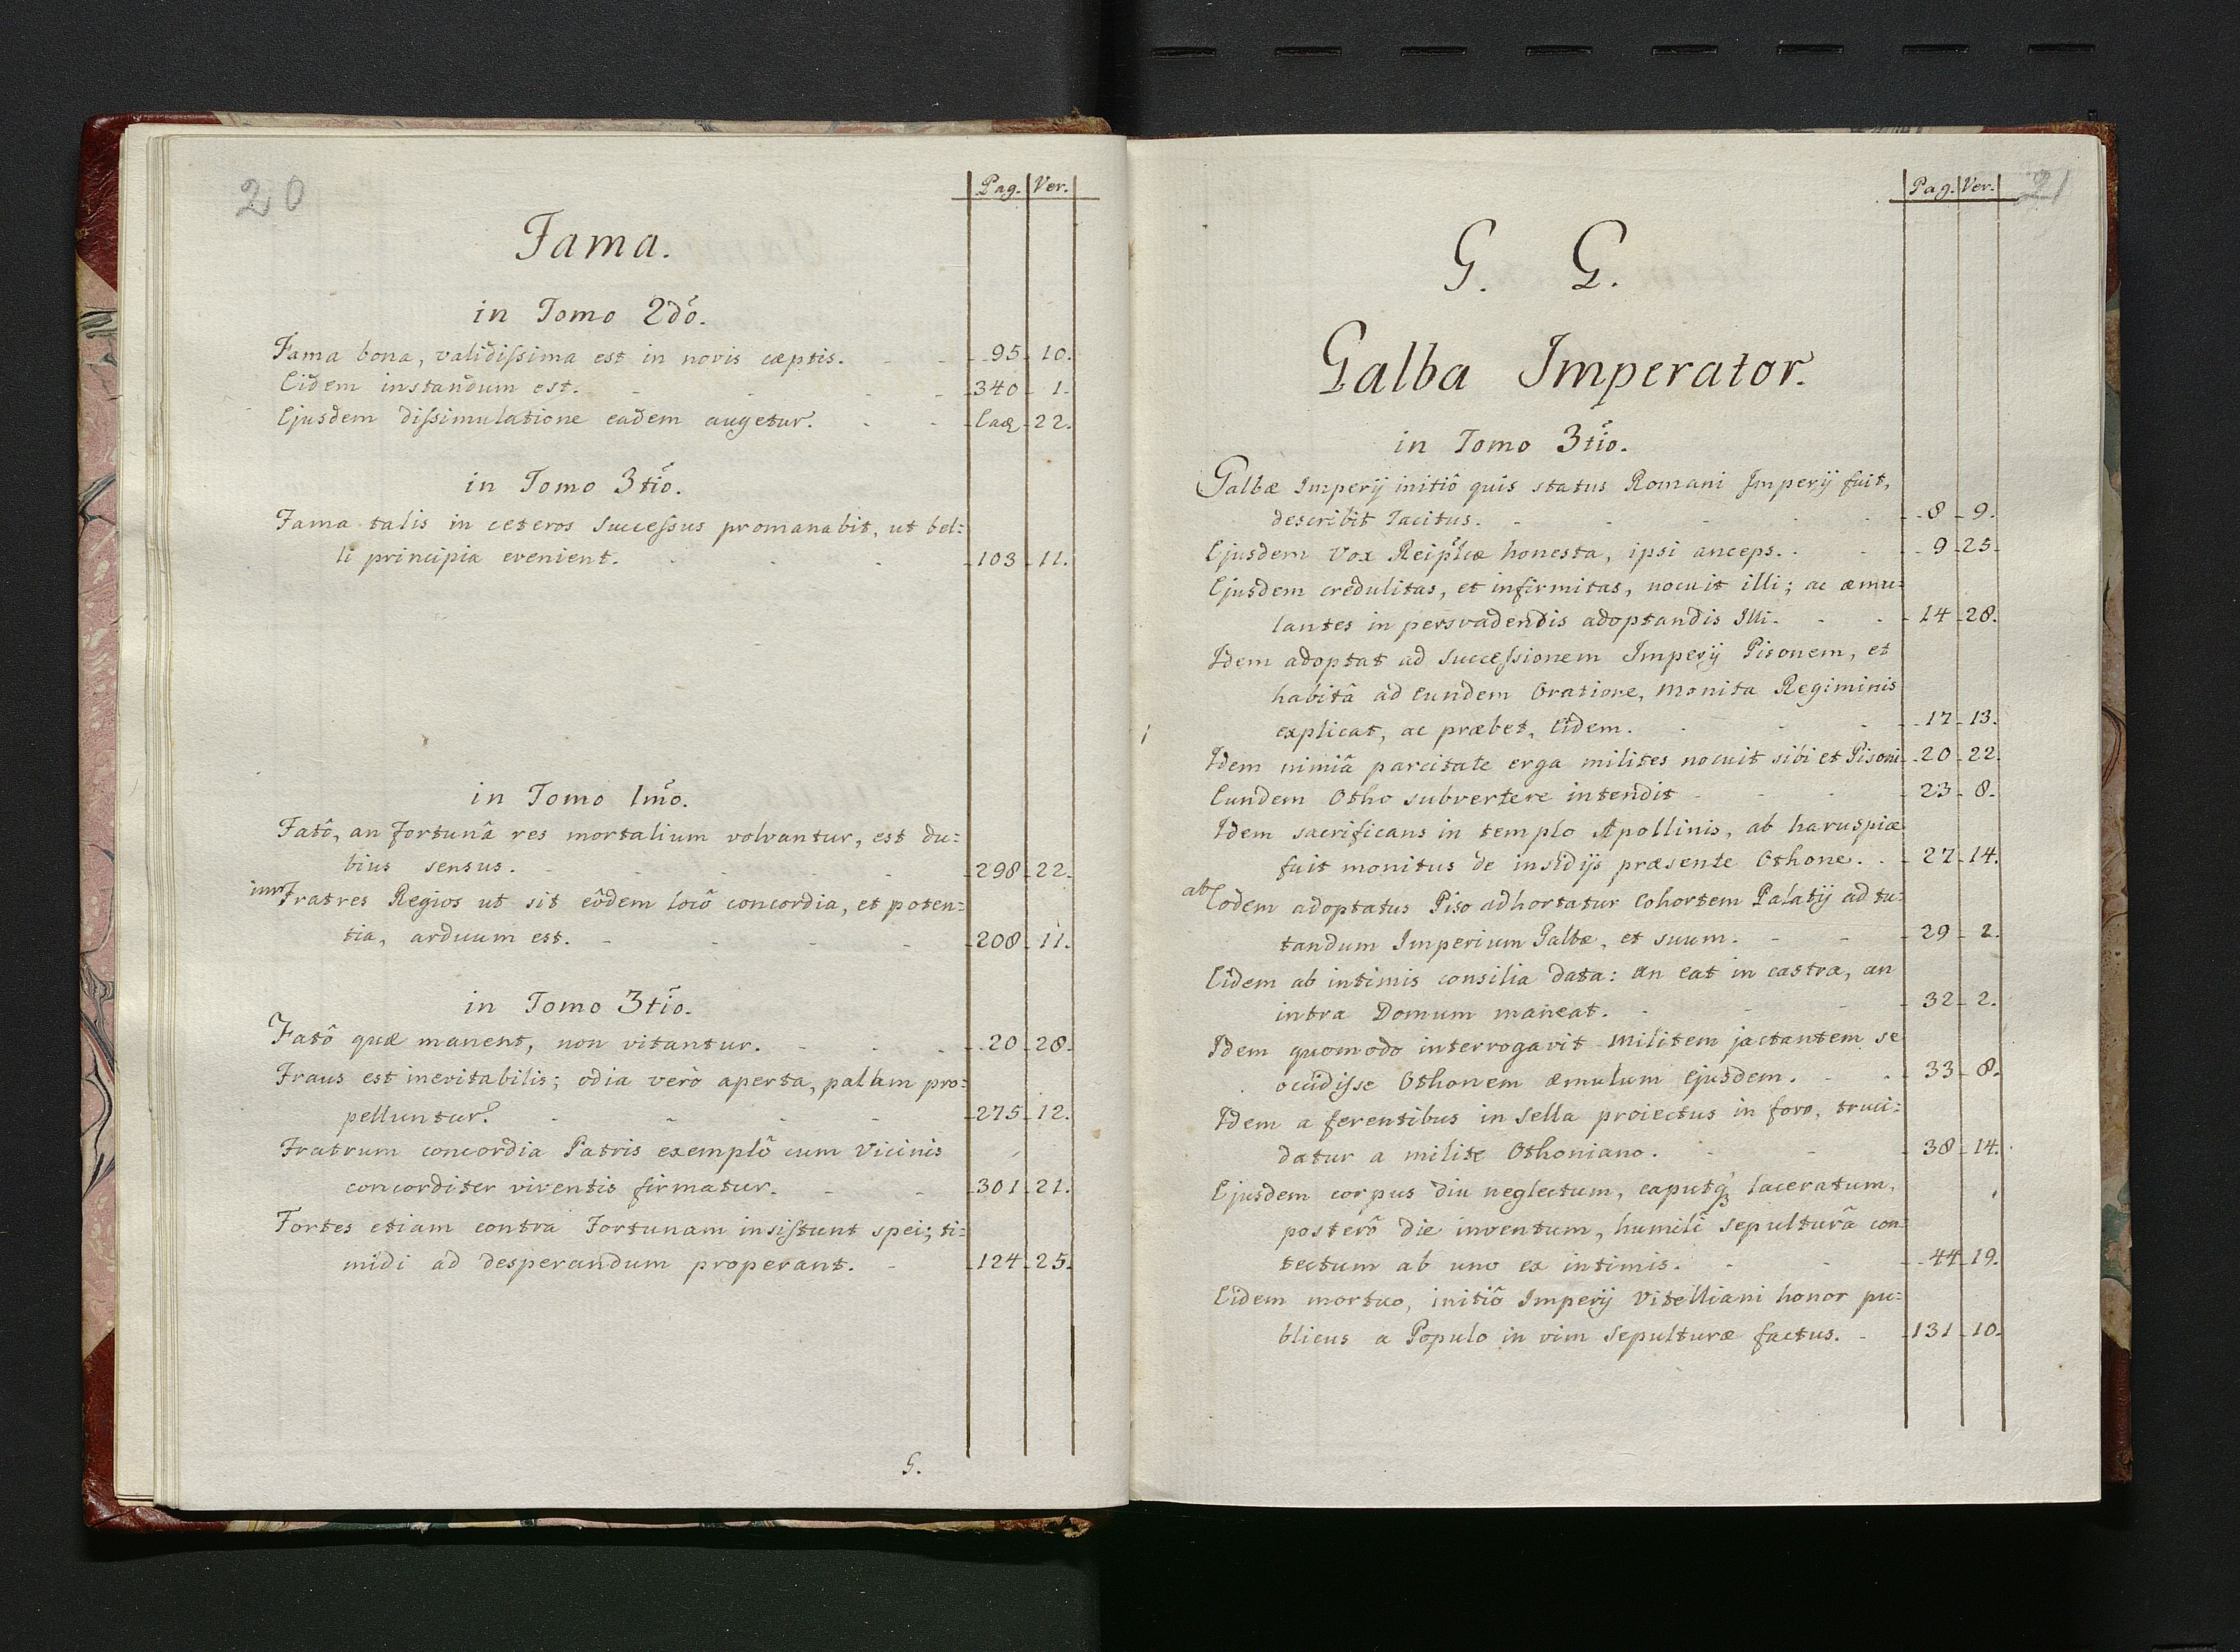 20
Pag. Ver.
Fama.
in Tomo 2dõ.
Fama bona, validiſsima est in novis cæptis. - - 95. 10.
Eidem instandum est. - - - - 340. 1.
Ejusdem diſsimulatione eadem augetur. - - Eaq 22.
in Tomo 3tiõ.
Fama talis in ceteros Succeſsus promanabit, ut bel:
li principia evenient. - - - 103. 11.
in Tomo 1mõ.
Fatô, an fortunâ res mortalium volvantur, est du:
bius sensus. - - - - 298. 22.
Fratres Regios ut sit eôdem locô concordia, et poten:
tia, arduum est. - - - - 208. 11.
in Tomo 3tiõ.
Fatô quæ manent, non vitantur. - - - 20. 28.
Fraus est inevitabilis; odia verò aperta, palam pro:
pelluntur. - - - - 275. 12.
Fratrum concordia Patris exemplô cum Vicinis
concorditer viventis firmatur. - - 301. 21.
Fortes etiam contra Fortunam insiſtunt spei; ti:
midi ad desperandum properant. - 124. 25.
G.
21
Pag. Ver.
G. G.
Galba Imperator.
in Tomo 3tiõ.
Galbæ Imperij initiô quis status Romani Imperij fuit,
describit Tacitus. - - - - - 8. 9.
Ejusdem Vox Reipłcæ honesta, ipsi anceps. - - 9. 25.
Ejusdem credulitas, et infirmitas, nocuit illi; ac æmu:
lantes in persvadendis adoptandis Illi. - - 14. 28.
Idem adoptat ad Succeſsionem Imperij Pisonem, et
habitâ ad Eundem Oratione, Monita Regiminis
explicat, ac præbet, Eidem. - - - 17. 13.
Idem nimiâ parcitate erga milites nocuit sibi et Pisoni. 20. 22.
Eundem Otho subvertere intendit - - - 23. 8.
Idem sacrificans in templo Apollinis, ab haruspice
fuit monitus de insidijs præsente Othone. - 27. 14.
ab Eodem adoptatus Piso adhortatur Cohortem Palatij ad tu:
tandum Imperium Galbæ, et suum. - - 29. 2.
Eidem ab intimis consilia data: an eat in castra, an
intra Domum maneat. - - - 32. 2.
Idem quomodo interrogavit Militem jactantem se
occidiſse Othonem æmulum Ejusdem. - - 33. 8.
Idem a ferentibus in Sella proiectus in foro, truci:
datur a milite Othoniano. - - - 38. 14.
Ejusdem corpus diu neglectum, caputq laceratum,
posterô die inventum, humili sepulturâ con:
tectum ab uno ex intimis. - - - 44. 19.
Eidem mortuo, initiô Imperij Vitelliani honor pu:
blicus a Populo in vim Sepulturæ factus. - 131. 10.